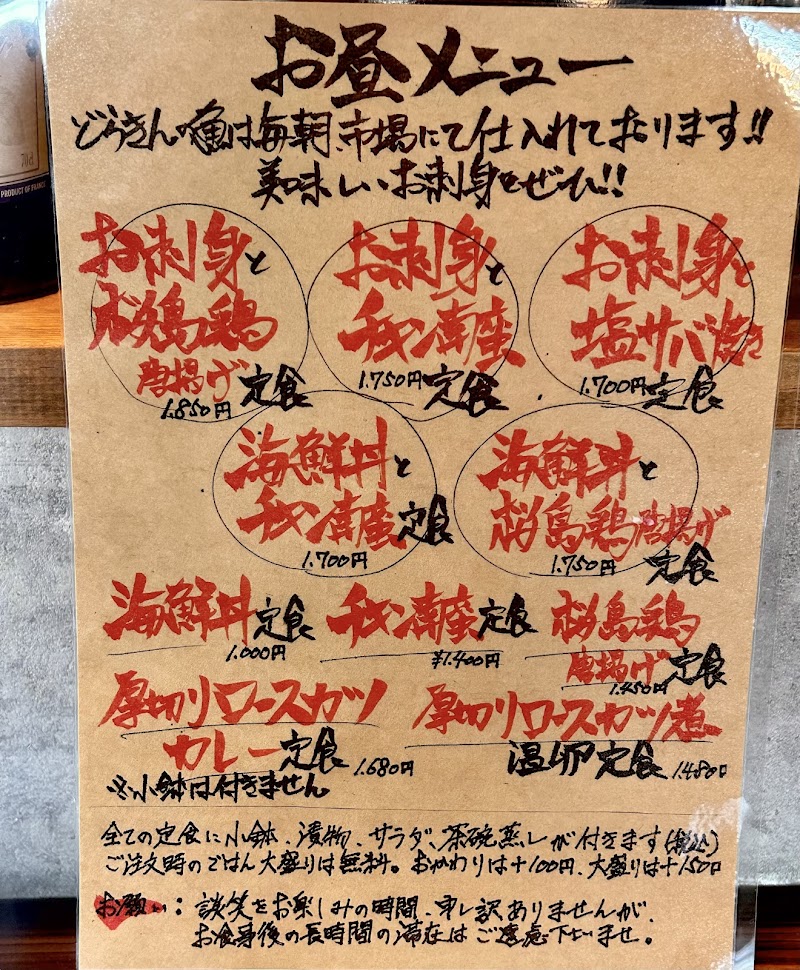 70cl
PRODUCT OF FRANCE
お昼メニュー
どらきんの魚は毎朝、市場にて仕入れております!!
美味しいお刺身をぜひ!!
お刺身と
桜島鶏
唐揚げ定食
1.850円
お刺身と
チキン南蛮
1.750円定食
お刺身と
塩サバ焼き
1.700円定食
海鮮丼と
チキン南蛮定食
1.700円
海鮮丼と
桜島鶏唐揚げ
1.750円定食
海鮮丼定食
1.000円
チキン南蛮定食
¥1.400円
桜島鶏
唐揚げ定食
1.450円
厚切りロースカツ
カレー定食 1.680円
※小鉢は付きません
厚切りロースカツ煮
温卵定食 1.480円
全ての定食に小鉢、漬物、サラダ、茶碗蒸しが付きます(税込)
ご注文時のごはん大盛りは無料。おかわりは+100円、大盛りは+150円
お願い:談笑をお楽しみの時間、申し訳ありませんが、
お食事後の長時間の滞在はご遠慮下さいませ。